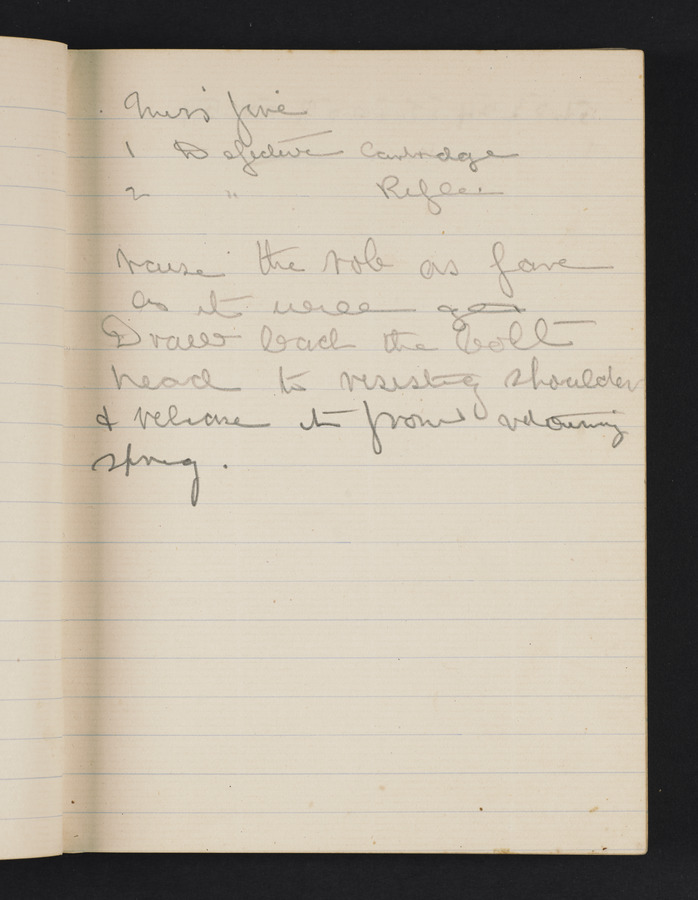 Miss fire
1 Defective Cartridge
2 " Rifle.
raise the rob as fare
as it will go
Draw back the bolt
head to resisting shoulder
& release it from retaining
spring.